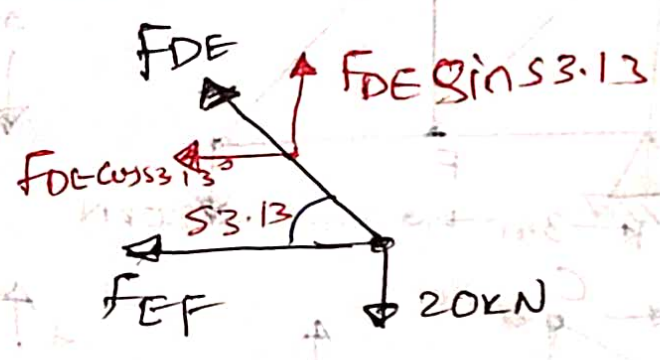 FDE
FDE sin 53.13
FDE cos 53.13°
53.13
FEF
20KN